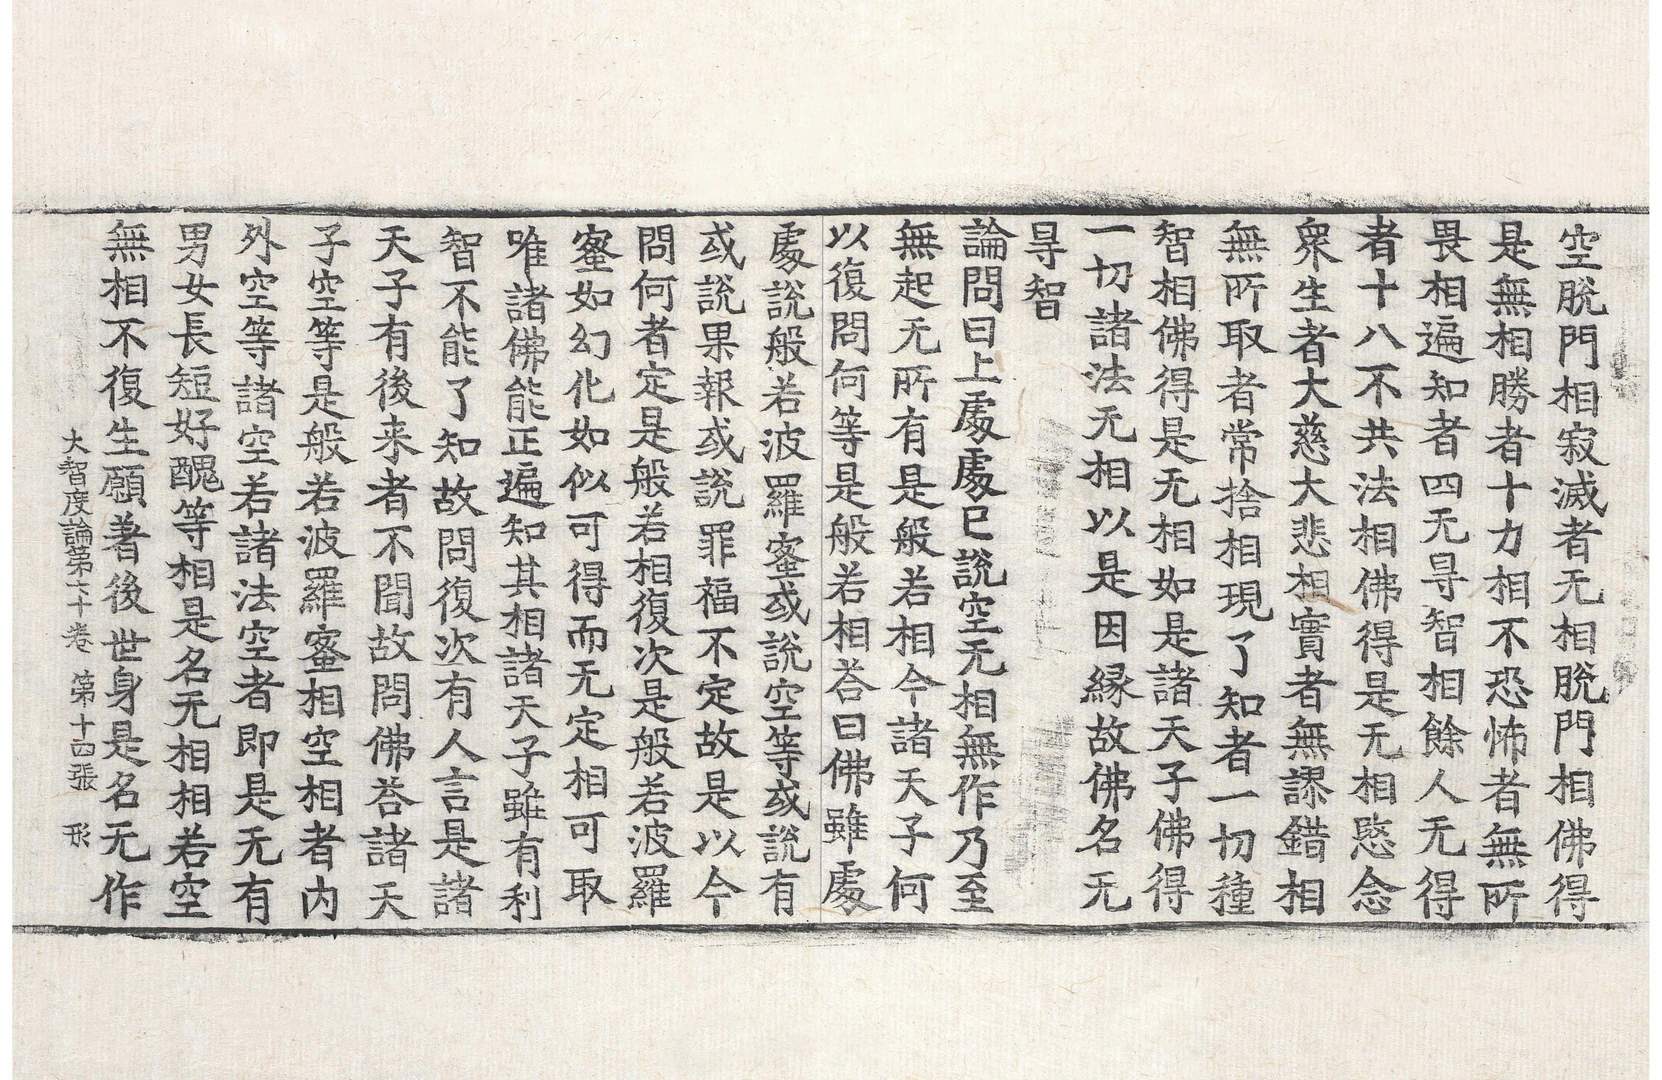 空脫門相寂滅者无相脫門相佛得
是無相勝者十力相不恐怖者無所
畏相遍知者四无㝵智相餘人无得
者十八不共法相佛得是无相愍念
衆生者大慈大悲相實者無謬錯相
無所取者常捨相現了知者一切種
智相佛得是无相如是諸天子佛得
一切諸法无相以是因縁故佛名无
㝵智
論問曰上處處已說空无相無作乃至
無起无所有是般若相今諸天子何
以復問何等是般若相荅曰佛雖處
處說般若波羅蜜或說空等或說有
或說果報或說罪福不定故是以今
問何者定是般若相復次是般若波羅
蜜如幻化如似可得而无定相可取
唯諸佛能正遍知其相諸天子雖有利
智不能了知故問復次有人言是諸
天子有後来者不聞故問佛荅諸天
子空等是般若波羅蜜相空相者內
外空等諸空若諸法空者即是无有
男女長短好醜等相是名无相相若空
無相不復生願著後世身是名无作
大智度論第六十卷 第十四張 形